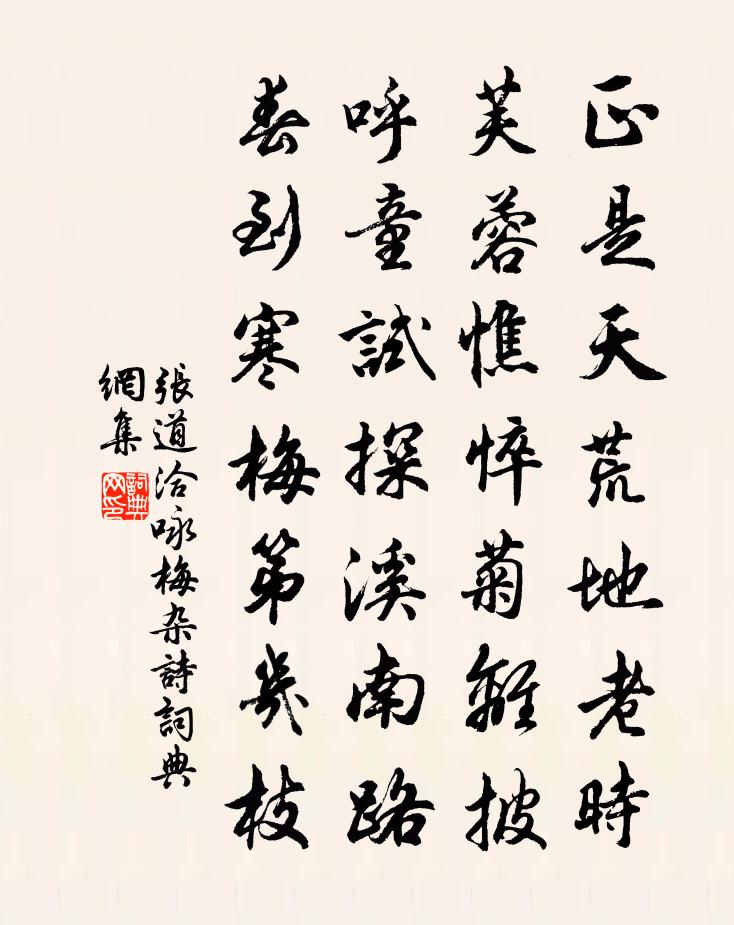 正是天荒地老時
芙蓉憔悴菊離披
呼童試探溪南路
春到寒梅第幾枝
張道洽咏梅杂詩詞典
網集
詞典
网印